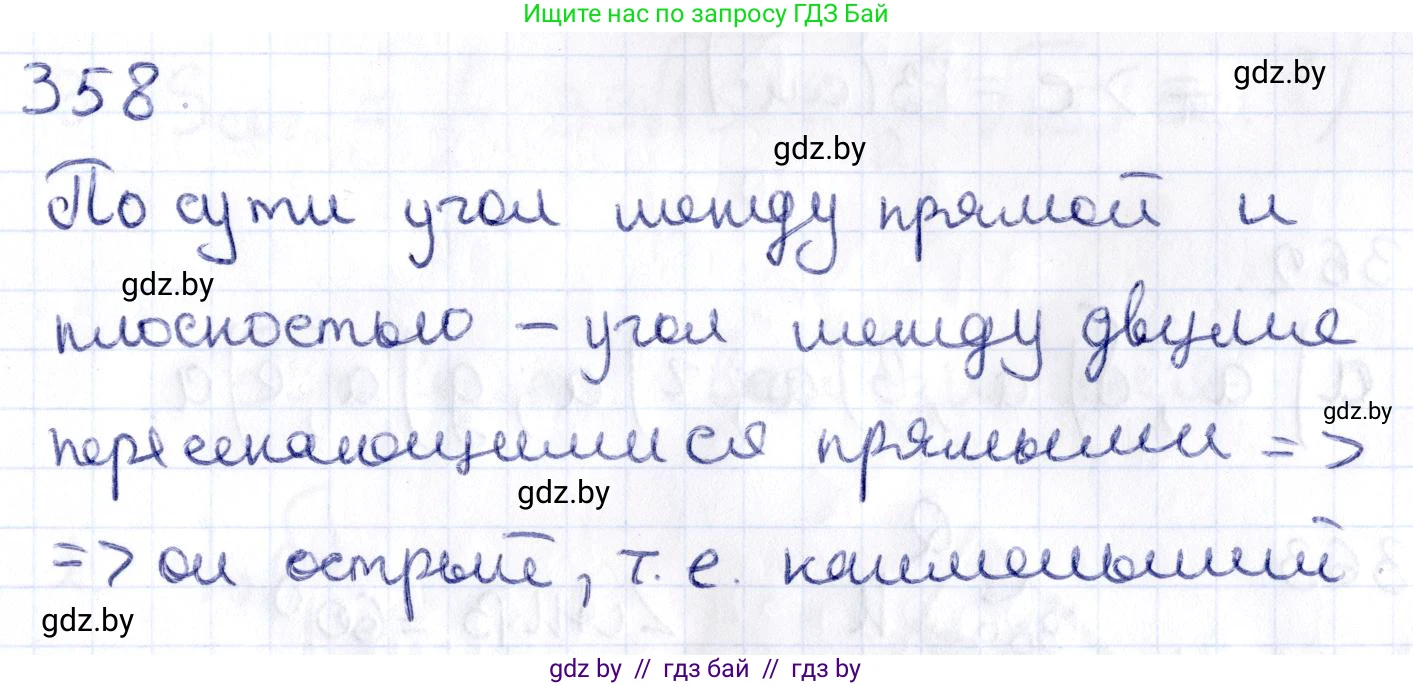 Ищите нас по запросу ГДЗ Бай
358.
gdz.by
gdz.by
По сути угол между прямой и
gdz.by
плоскостью – угол между двумя
gdz.by
пересекающимися прямыми =>
gdz.by
=> он острый, т.е. наименьший.
gdz.by
gdz.by // гдз бай // гдз by